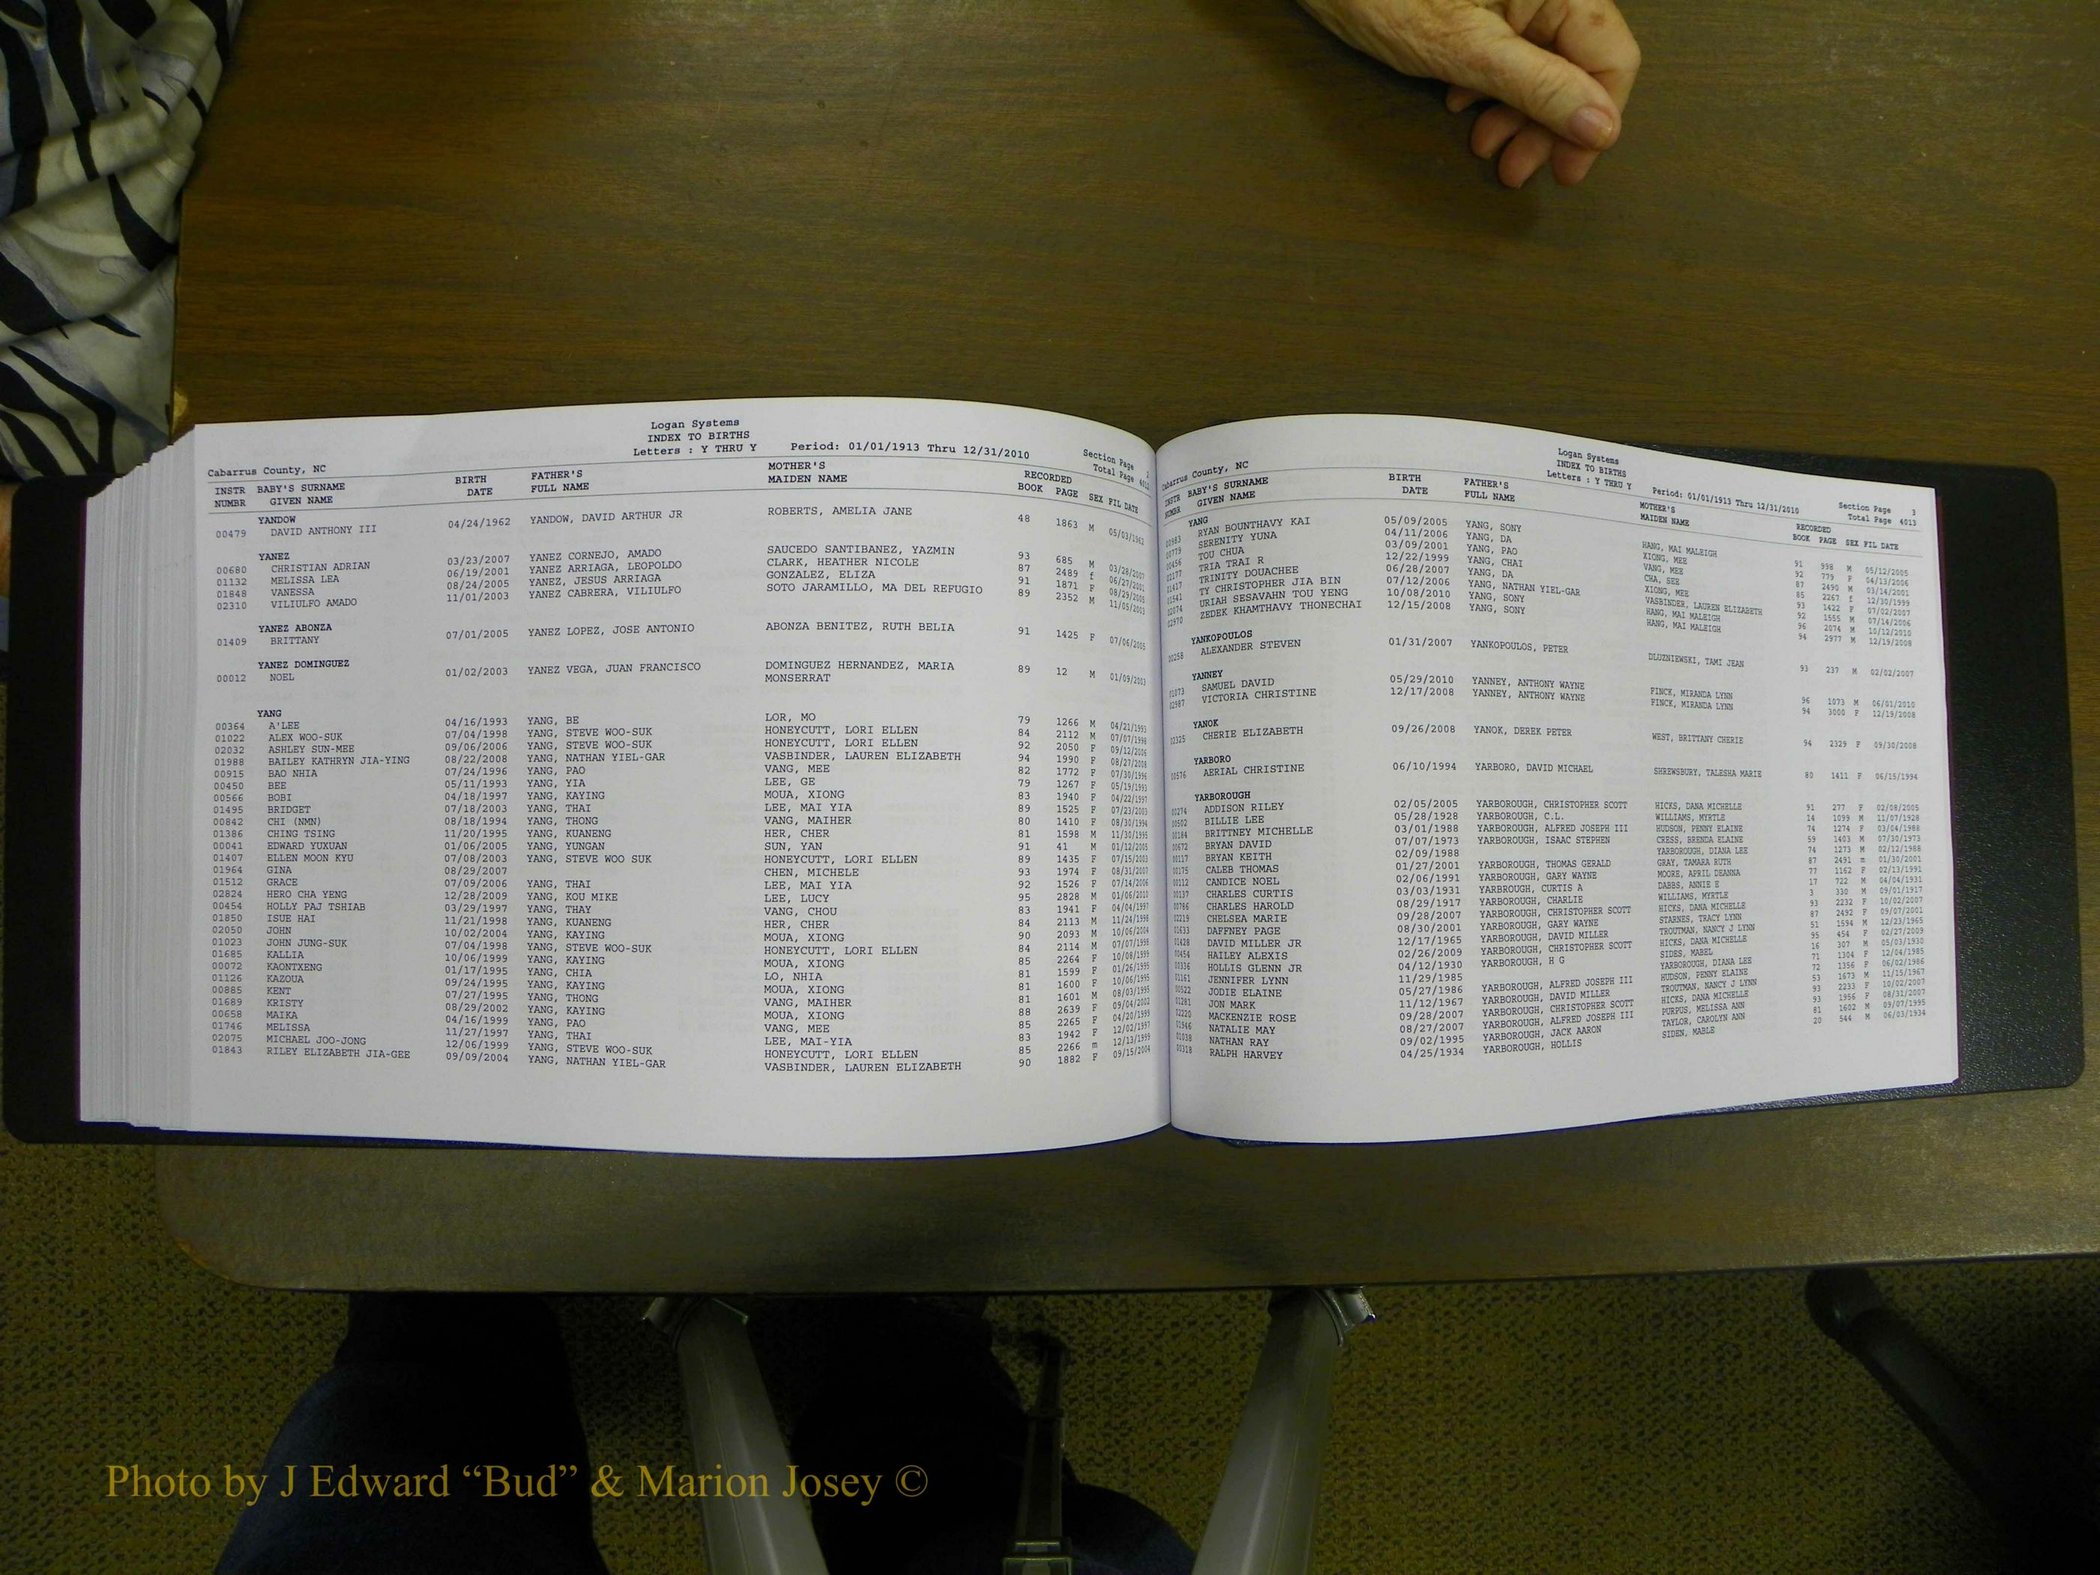 Logan Systems
INDEX TO BIRTHS
Letters : Y THRU Y Period: 01/01/1913 Thru 12/31/2010
Section Page 2
Total Page 4012
Cabarrus County, NC
INSTR BABY'S SURNAME BIRTH FATHER'S MOTHER'S RECORDED
NUMBR GIVEN NAME DATE FULL NAME MAIDEN NAME BOOK PAGE SEX FIL DATE
YANDOW
00479 DAVID ANTHONY III 04/24/1962 YANDOW, DAVID ARTHUR JR ROBERTS, AMELIA JANE 48 1863 M 05/03/1962
YANEZ
00680 CHRISTIAN ADRIAN 03/23/2007 YANEZ CORNEJO, AMADO SAUCEDO SANTIBANEZ, YAZMIN 93 685 M 03/28/2007
01132 MELISSA LEA 06/19/2001 YANEZ ARRIAGA, LEOPOLDO CLARK, HEATHER NICOLE 87 2489 f 06/27/2001
01848 VANESSA 08/24/2005 YANEZ, JESUS ARRIAGA GONZALEZ, ELIZA 91 1871 F 08/29/2005
02310 VILIULFO AMADO 11/01/2003 YANEZ CABRERA, VILIULFO SOTO JARAMILLO, MA DEL REFUGIO 89 2352 M 11/05/2003
YANEZ ABONZA
01409 BRITTANY 07/01/2005 YANEZ LOPEZ, JOSE ANTONIO ABONZA BENITEZ, RUTH BELIA 91 1425 F 07/06/2005
YANEZ DOMINGUEZ
00012 NOEL 01/02/2003 YANEZ VEGA, JUAN FRANCISCO DOMINGUEZ HERNANDEZ, MARIA 89 12 M 01/09/2003
MONSERRAT
YANG
00364 A'LEE 04/16/1993 YANG, BE LOR, MO 79 1266 M 04/21/1993
01022 ALEX WOO-SUK 07/04/1998 YANG, STEVE WOO-SUK HONEYCUTT, LORI ELLEN 84 2112 M 07/07/1998
02032 ASHLEY SUN-MEE 09/06/2006 YANG, STEVE WOO-SUK HONEYCUTT, LORI ELLEN 92 2050 F 09/12/2006
01988 BAILEY KATHRYN JIA-YING 08/22/2008 YANG, NATHAN YIEL-GAR VASBINDER, LAUREN ELIZABETH 94 1990 F 08/27/2008
00915 BAO NHIA 07/24/1996 YANG, PAO VANG, MEE 82 1772 F 07/30/1996
00450 BEE 05/11/1993 YANG, YIA LEE, GE 79 1267 F 05/19/1993
00566 BOBI 04/18/1997 YANG, KAYING MOUA, XIONG 83 1940 F 04/22/1997
01495 BRIDGET 07/18/2003 YANG, THAI LEE, MAI YIA 89 1525 F 07/23/2003
00842 CHI (NMN) 08/18/1994 YANG, THONG VANG, MAIHER 80 1410 F 08/30/1994
01386 CHING TSING 11/20/1995 YANG, KUANENG HER, CHER 81 1598 M 11/30/1995
00041 EDWARD YUXUAN 01/06/2005 YANG, YUNGAN SUN, YAN 91 41 M 01/12/2005
01407 ELLEN MOON KYU 07/08/2003 YANG, STEVE WOO SUK HONEYCUTT, LORI ELLEN 89 1435 F 07/15/2003
01964 GINA 08/29/2007 CHEN, MICHELE 93 1974 F 08/31/2007
01512 GRACE 07/09/2006 YANG, THAI LEE, MAI YIA 92 1526 F 07/14/2006
02824 HERO CHA YENG 12/28/2009 YANG, KOU MIKE LEE, LUCY 95 2828 M 01/06/2010
00454 HOLLY PAJ TSHIAB 03/29/1997 YANG, THAY VANG, CHOU 83 1941 F 04/04/1997
01850 ISUE HAI 11/21/1998 YANG, KUANENG HER, CHER 84 2113 M 11/24/1998
02050 JOHN 10/02/2004 YANG, KAYING MOUA, XIONG 90 2093 M 10/06/2004
01023 JOHN JUNG-SUK 07/04/1998 YANG, STEVE WOO-SUK HONEYCUTT, LORI ELLEN 84 2114 M 07/07/1998
01685 KALLIA 10/06/1999 YANG, KAYING MOUA, XIONG 85 2264 F 10/08/1999
00072 KAONTXENG 01/17/1995 YANG, CHIA LO, NHIA 81 1599 F 01/26/1995
01126 KAZOUA 09/24/1995 YANG, KAYING MOUA, XIONG 81 1600 F 10/06/1995
00885 KENT 07/27/1995 YANG, THONG VANG, MAIHER 81 1601 M 08/03/1995
01689 KRISTY 08/29/2002 YANG, KAYING MOUA, XIONG 88 2639 F 09/04/2002
00658 MAIKA 04/16/1999 YANG, PAO VANG, MEE 85 2265 F 04/20/1999
01746 MELISSA 11/27/1997 YANG, THAI LEE, MAI-YIA 83 1942 F 12/02/1997
02075 MICHAEL JOO-JONG 12/06/1999 YANG, STEVE WOO-SUK HONEYCUTT, LORI ELLEN 85 2266 m 12/13/1999
01843 RILEY ELIZABETH JIA-GEE 09/09/2004 YANG, NATHAN YIEL-GAR VASBINDER, LAUREN ELIZABETH 90 1882 F 09/15/2004
Logan Systems
INDEX TO BIRTHS
Letters : Y THRU Y Period: 01/01/1913 Thru 12/31/2010
Section Page 3
Total Page 4013
Cabarrus County, NC
INSTR BABY'S SURNAME BIRTH FATHER'S MOTHER'S RECORDED
NUMBR GIVEN NAME DATE FULL NAME MAIDEN NAME BOOK PAGE SEX FIL DATE
YANG
00983 RYAN BOUNTHAVY KAI 05/09/2005 YANG, SONY HANG, MAI MALEIGH 91 998 M 05/12/2005
00779 SERENITY YUNA 04/11/2006 YANG, DA XIONG, MEE 92 779 F 04/13/2006
00456 TOU CHUA 03/09/2001 YANG, PAO VANG, MEE 87 2490 M 03/14/2001
02177 TRIA TRAI R 12/22/1999 YANG, CHAI CHA, SEE 85 2267 f 12/30/1999
01617 TRINITY DOUACHEE 06/28/2007 YANG, DA XIONG, MEE 93 1422 F 07/02/2007
01541 TY CHRISTOPHER JIA BIN 07/12/2006 YANG, NATHAN YIEL-GAR VASBINDER, LAUREN ELIZABETH 92 1555 M 07/14/2006
02074 URIAH SESAVAHN TOU YENG 10/08/2010 YANG, SONY HANG, MAI MALEIGH 96 2074 M 10/12/2010
02970 ZEDEK KHAMTHAVY THONECHAI 12/15/2008 YANG, SONY HANG, MAI MALEIGH 94 2977 M 12/19/2008
YANKOPOULOS
00258 ALEXANDER STEVEN 01/31/2007 YANKOPOULOS, PETER DLUZNIEWSKI, TAMI JEAN 93 237 M 02/02/2007
YANNEY
01073 SAMUEL DAVID 05/29/2010 YANNEY, ANTHONY WAYNE FINCK, MIRANDA LYNN 96 1073 M 06/01/2010
02987 VICTORIA CHRISTINE 12/17/2008 YANNEY, ANTHONY WAYNE FINCK, MIRANDA LYNN 94 3000 F 12/19/2008
YANOK
02325 CHERIE ELIZABETH 09/26/2008 YANOK, DEREK PETER WEST, BRITTANY CHERIE 94 2329 F 09/30/2008
YARBORO
00576 AERIAL CHRISTINE 06/10/1994 YARBORO, DAVID MICHAEL SHREWSBURY, TALESHA MARIE 80 1411 F 06/15/1994
YARBOROUGH
00274 ADDISON RILEY 02/05/2005 YARBOROUGH, CHRISTOPHER SCOTT HICKS, DANA MICHELLE 91 277 F 02/08/2005
00502 BILLIE LEE 05/28/1928 YARBOROUGH, C.L. WILLIAMS, MYRTLE 14 1099 M 11/07/1928
00184 BRITTNEY MICHELLE 03/01/1988 YARBOROUGH, ALFRED JOSEPH III HUDSON, PENNY ELAINE 74 1274 F 03/04/1988
00672 BRYAN DAVID 07/07/1973 YARBOROUGH, ISAAC STEPHEN CRESS, BRENDA ELAINE 59 1403 M 07/30/1973
00117 BRYAN KEITH 02/09/1988 YARBOROUGH, DIANA LEE 74 1273 M 02/12/1988
00175 CALEB THOMAS 01/27/2001 YARBOROUGH, THOMAS GERALD GRAY, TAMARA RUTH 87 2491 m 01/30/2001
00112 CANDICE NOEL 02/06/1991 YARBOROUGH, GARY WAYNE MOORE, APRIL DEANNA 77 1162 F 02/13/1991
00137 CHARLES CURTIS 03/03/1931 YARBROUGH, CURTIS A DABBS, ANNIE E 17 722 M 04/04/1931
00786 CHARLES HAROLD 08/29/1917 YARBOROUGH, CHARLIE WILLIAMS, MYRTLE 3 330 M 09/01/1917
02219 CHELSEA MARIE 09/28/2007 YARBOROUGH, CHRISTOPHER SCOTT HICKS, DANA MICHELLE 93 2232 F 10/02/2007
01633 DAFFNEY PAGE 08/30/2001 YARBOROUGH, GARY WAYNE STARNES, TRACY LYNN 87 2492 F 09/07/2001
01428 DAVID MILLER JR 12/17/1965 YARBOROUGH, DAVID MILLER TROUTMAN, NANCY J LYNN 51 1594 M 12/23/1965
00454 HAILEY ALEXIS 02/26/2009 YARBOROUGH, CHRISTOPHER SCOTT HICKS, DANA MICHELLE 95 454 F 02/27/2009
00336 HOLLIS GLENN JR 04/12/1930 YARBOROUGH, H G SIDES, MABEL 16 307 M 05/03/1930
01161 JENNIFER LYNN 11/29/1985 YARBOROUGH, DIANA LEE 71 1304 F 12/04/1985
00522 JODIE ELAINE 05/27/1986 YARBOROUGH, ALFRED JOSEPH III HUDSON, PENNY ELAINE 72 1356 F 06/02/1986
01281 JON MARK 11/12/1967 YARBOROUGH, DAVID MILLER TROUTMAN, NANCY J LYNN 53 1673 M 11/15/1967
02220 MACKENZIE ROSE 09/28/2007 YARBOROUGH, CHRISTOPHER SCOTT HICKS, DANA MICHELLE 93 2233 F 10/02/2007
01946 NATALIE MAY 08/27/2007 YARBOROUGH, ALFRED JOSEPH III PURPUS, MELISSA ANN 93 1956 F 08/31/2007
01038 NATHAN RAY 09/02/1995 YARBOROUGH, JACK AARON TAYLOR, CAROLYN ANN 81 1602 M 09/07/1995
00318 RALPH HARVEY 04/25/1934 YARBOROUGH, HOLLIS SIDEN, MABLE 20 544 M 06/03/1934
Photo by J Edward “Bud” & Marion Josey ©